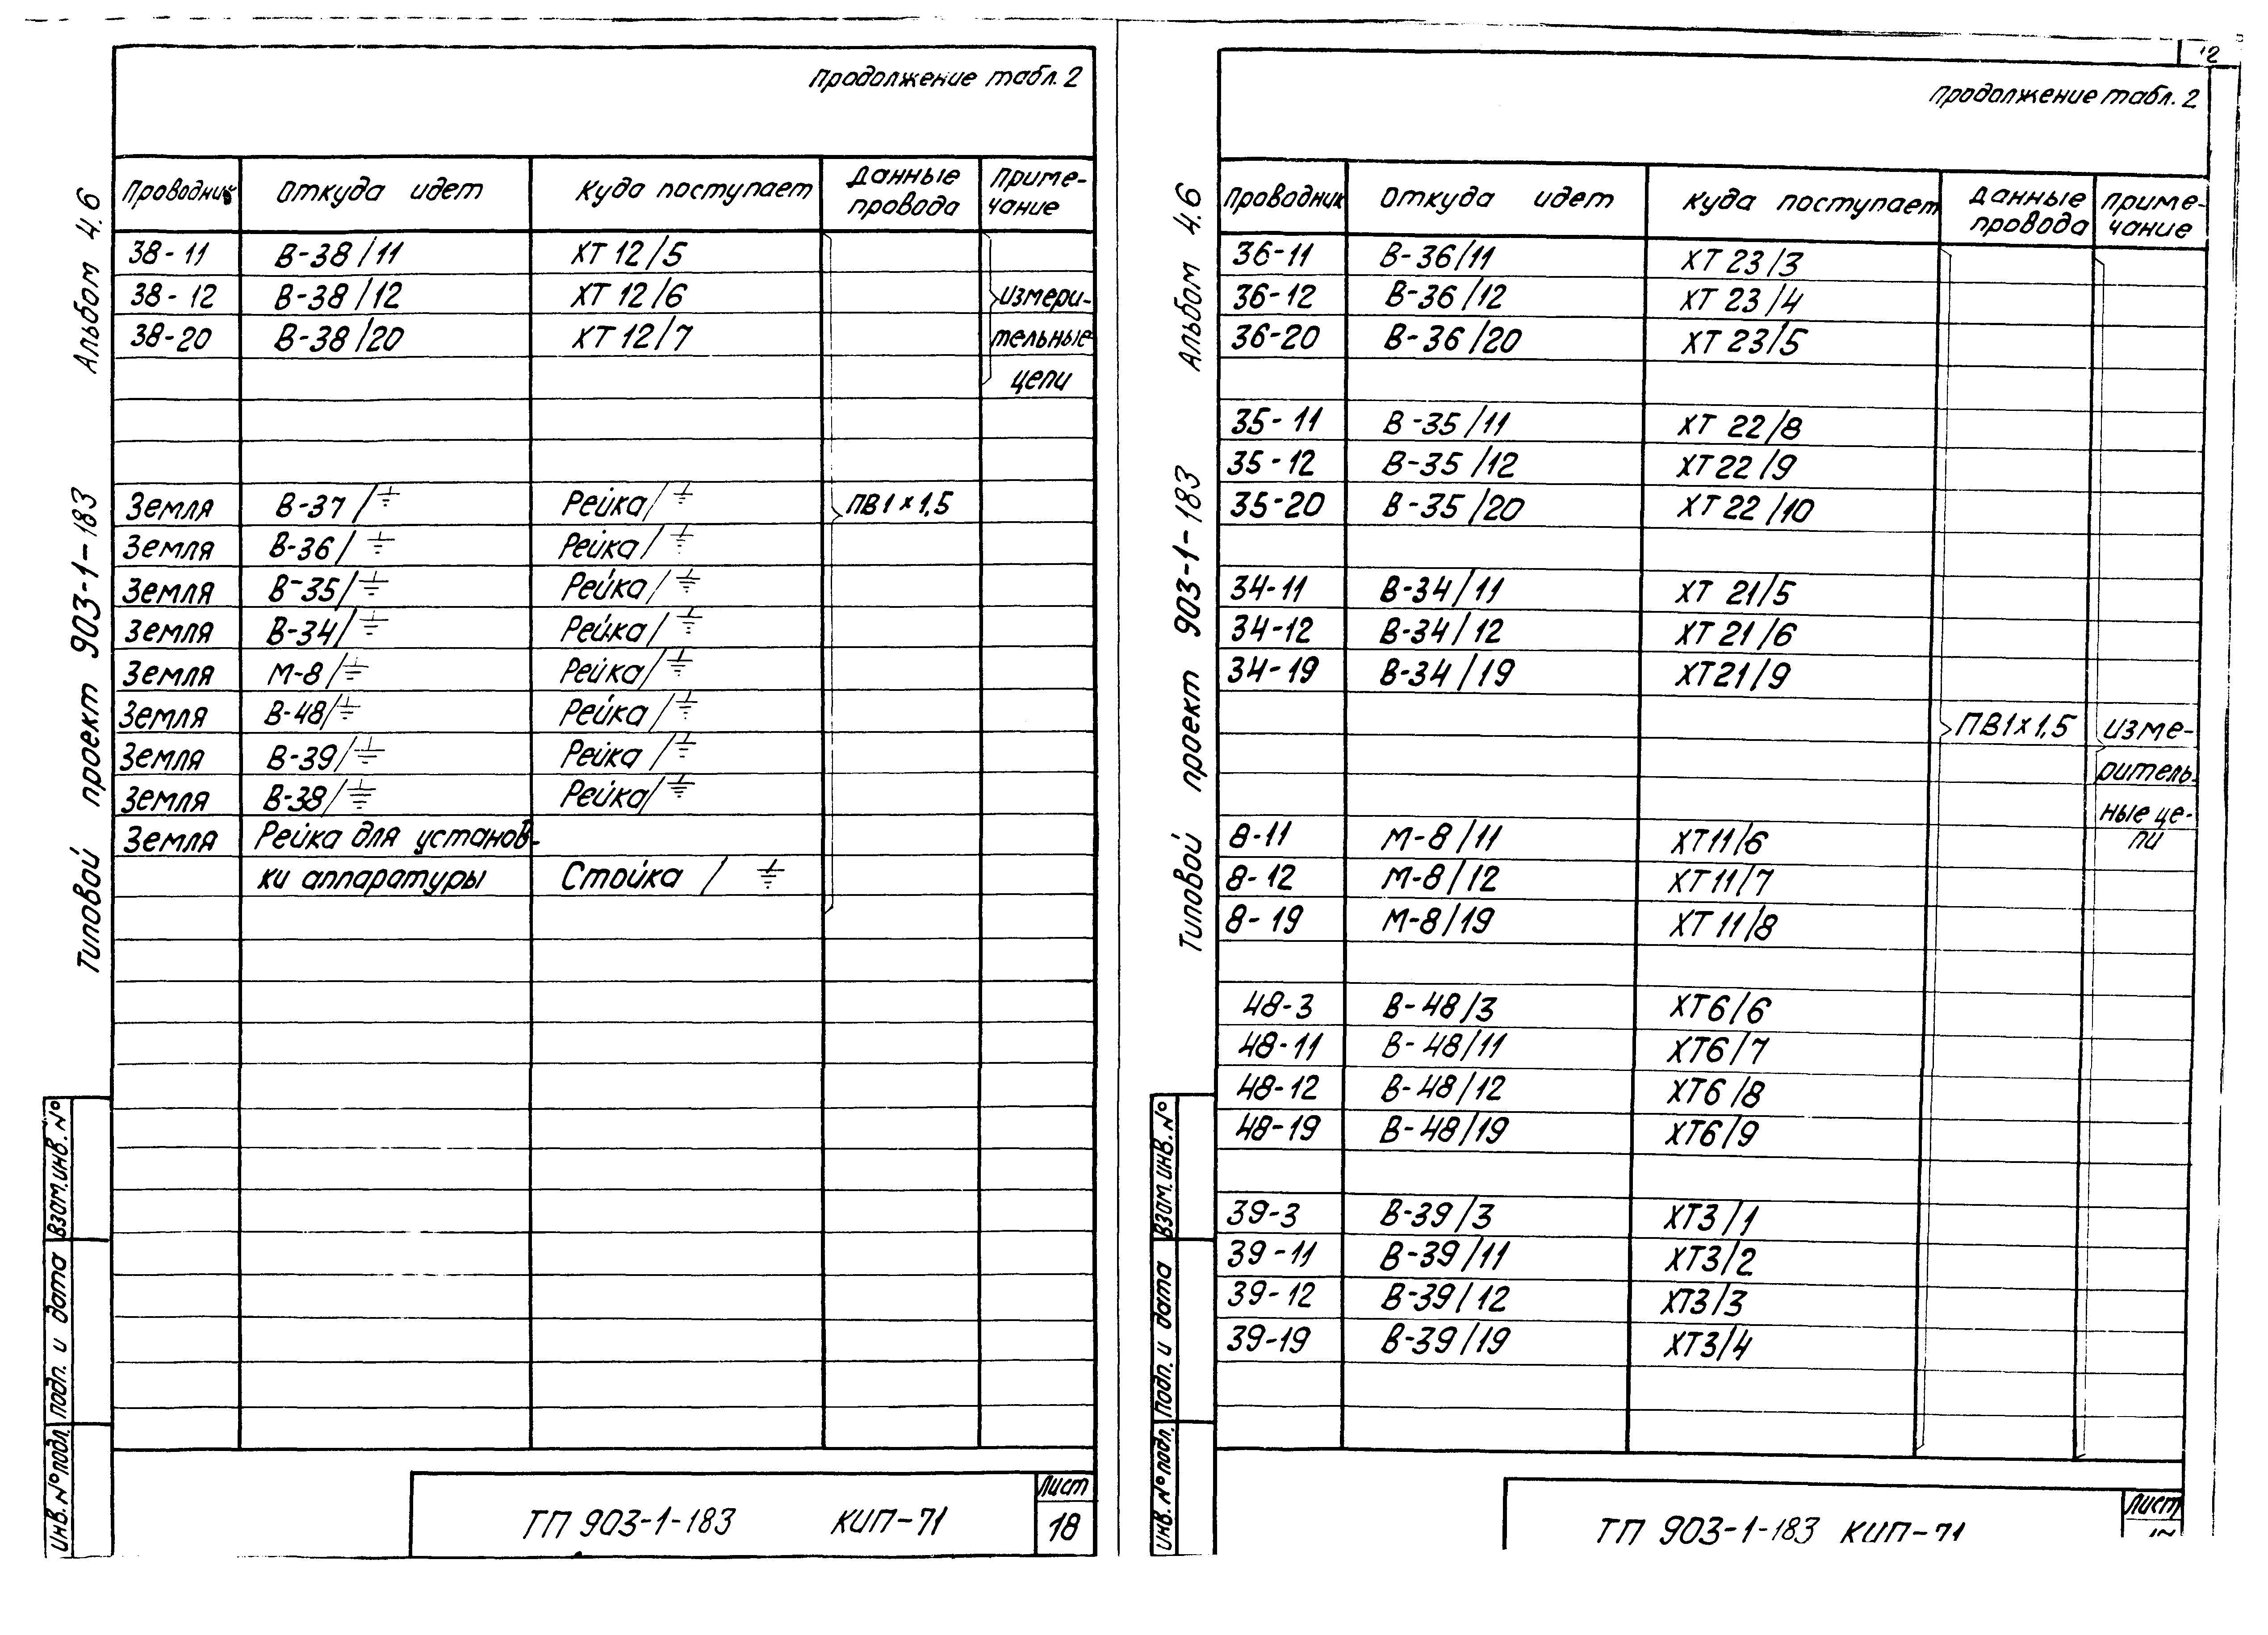 Продолжение табл. 2
Проводник Откуда идет Куда поступает Данные провода Приме-чание
38-11 В-38/11 ХТ 12/5
38-12 В-38/12 ХТ 12/6 измери-
38-20 В-38/20 ХТ 12/7 тельные
цепи
Земля В-37/⏚ Рейка/⏚ ПВ1×1,5
Земля В-36/⏚ Рейка/⏚
Земля В-35/⏚ Рейка/⏚
Земля В-34/⏚ Рейка/⏚
Земля М-8/⏚ Рейка/⏚
Земля В-48/⏚ Рейка/⏚
Земля В-39/⏚ Рейка/⏚
Земля В-38/⏚ Рейка/⏚
Земля Рейка для установ-
ки аппаратуры Стойка / ⏚
Типовой проект 903-1-183 Альбом 4.6
Инв. № подл. Подп. и дата Взам. инв. №
ТП 903-1-183 КИП-71
Лист
18
Продолжение табл. 2
Проводник Откуда идет Куда поступает Данные провода Приме-чание
36-11 В-36/11 ХТ 23/3
36-12 В-36/12 ХТ 23/4
36-20 В-36/20 ХТ 23/5
35-11 В-35/11 ХТ 22/8
35-12 В-35/12 ХТ 22/9
35-20 В-35/20 ХТ 22/10
34-11 В-34/11 ХТ 21/5
34-12 В-34/12 ХТ 21/6
34-19 В-34/19 ХТ 21/9
ПВ1×1,5 изме-
ритель-
ные це-
пи
8-11 М-8/11 ХТ11/6
8-12 М-8/12 ХТ11/7
8-19 М-8/19 ХТ11/8
48-3 В-48/3 ХТ6/6
48-11 В-48/11 ХТ6/7
48-12 В-48/12 ХТ6/8
48-19 В-48/19 ХТ6/9
39-3 В-39/3 ХТ3/1
39-11 В-39/11 ХТ3/2
39-12 В-39/12 ХТ3/3
39-19 В-39/19 ХТ3/4
Типовой проект 903-1-183 Альбом 4.6
Инв. № подл. Подп. и дата Взам. инв. №
ТП 903-1-183 КИП-71
Лист